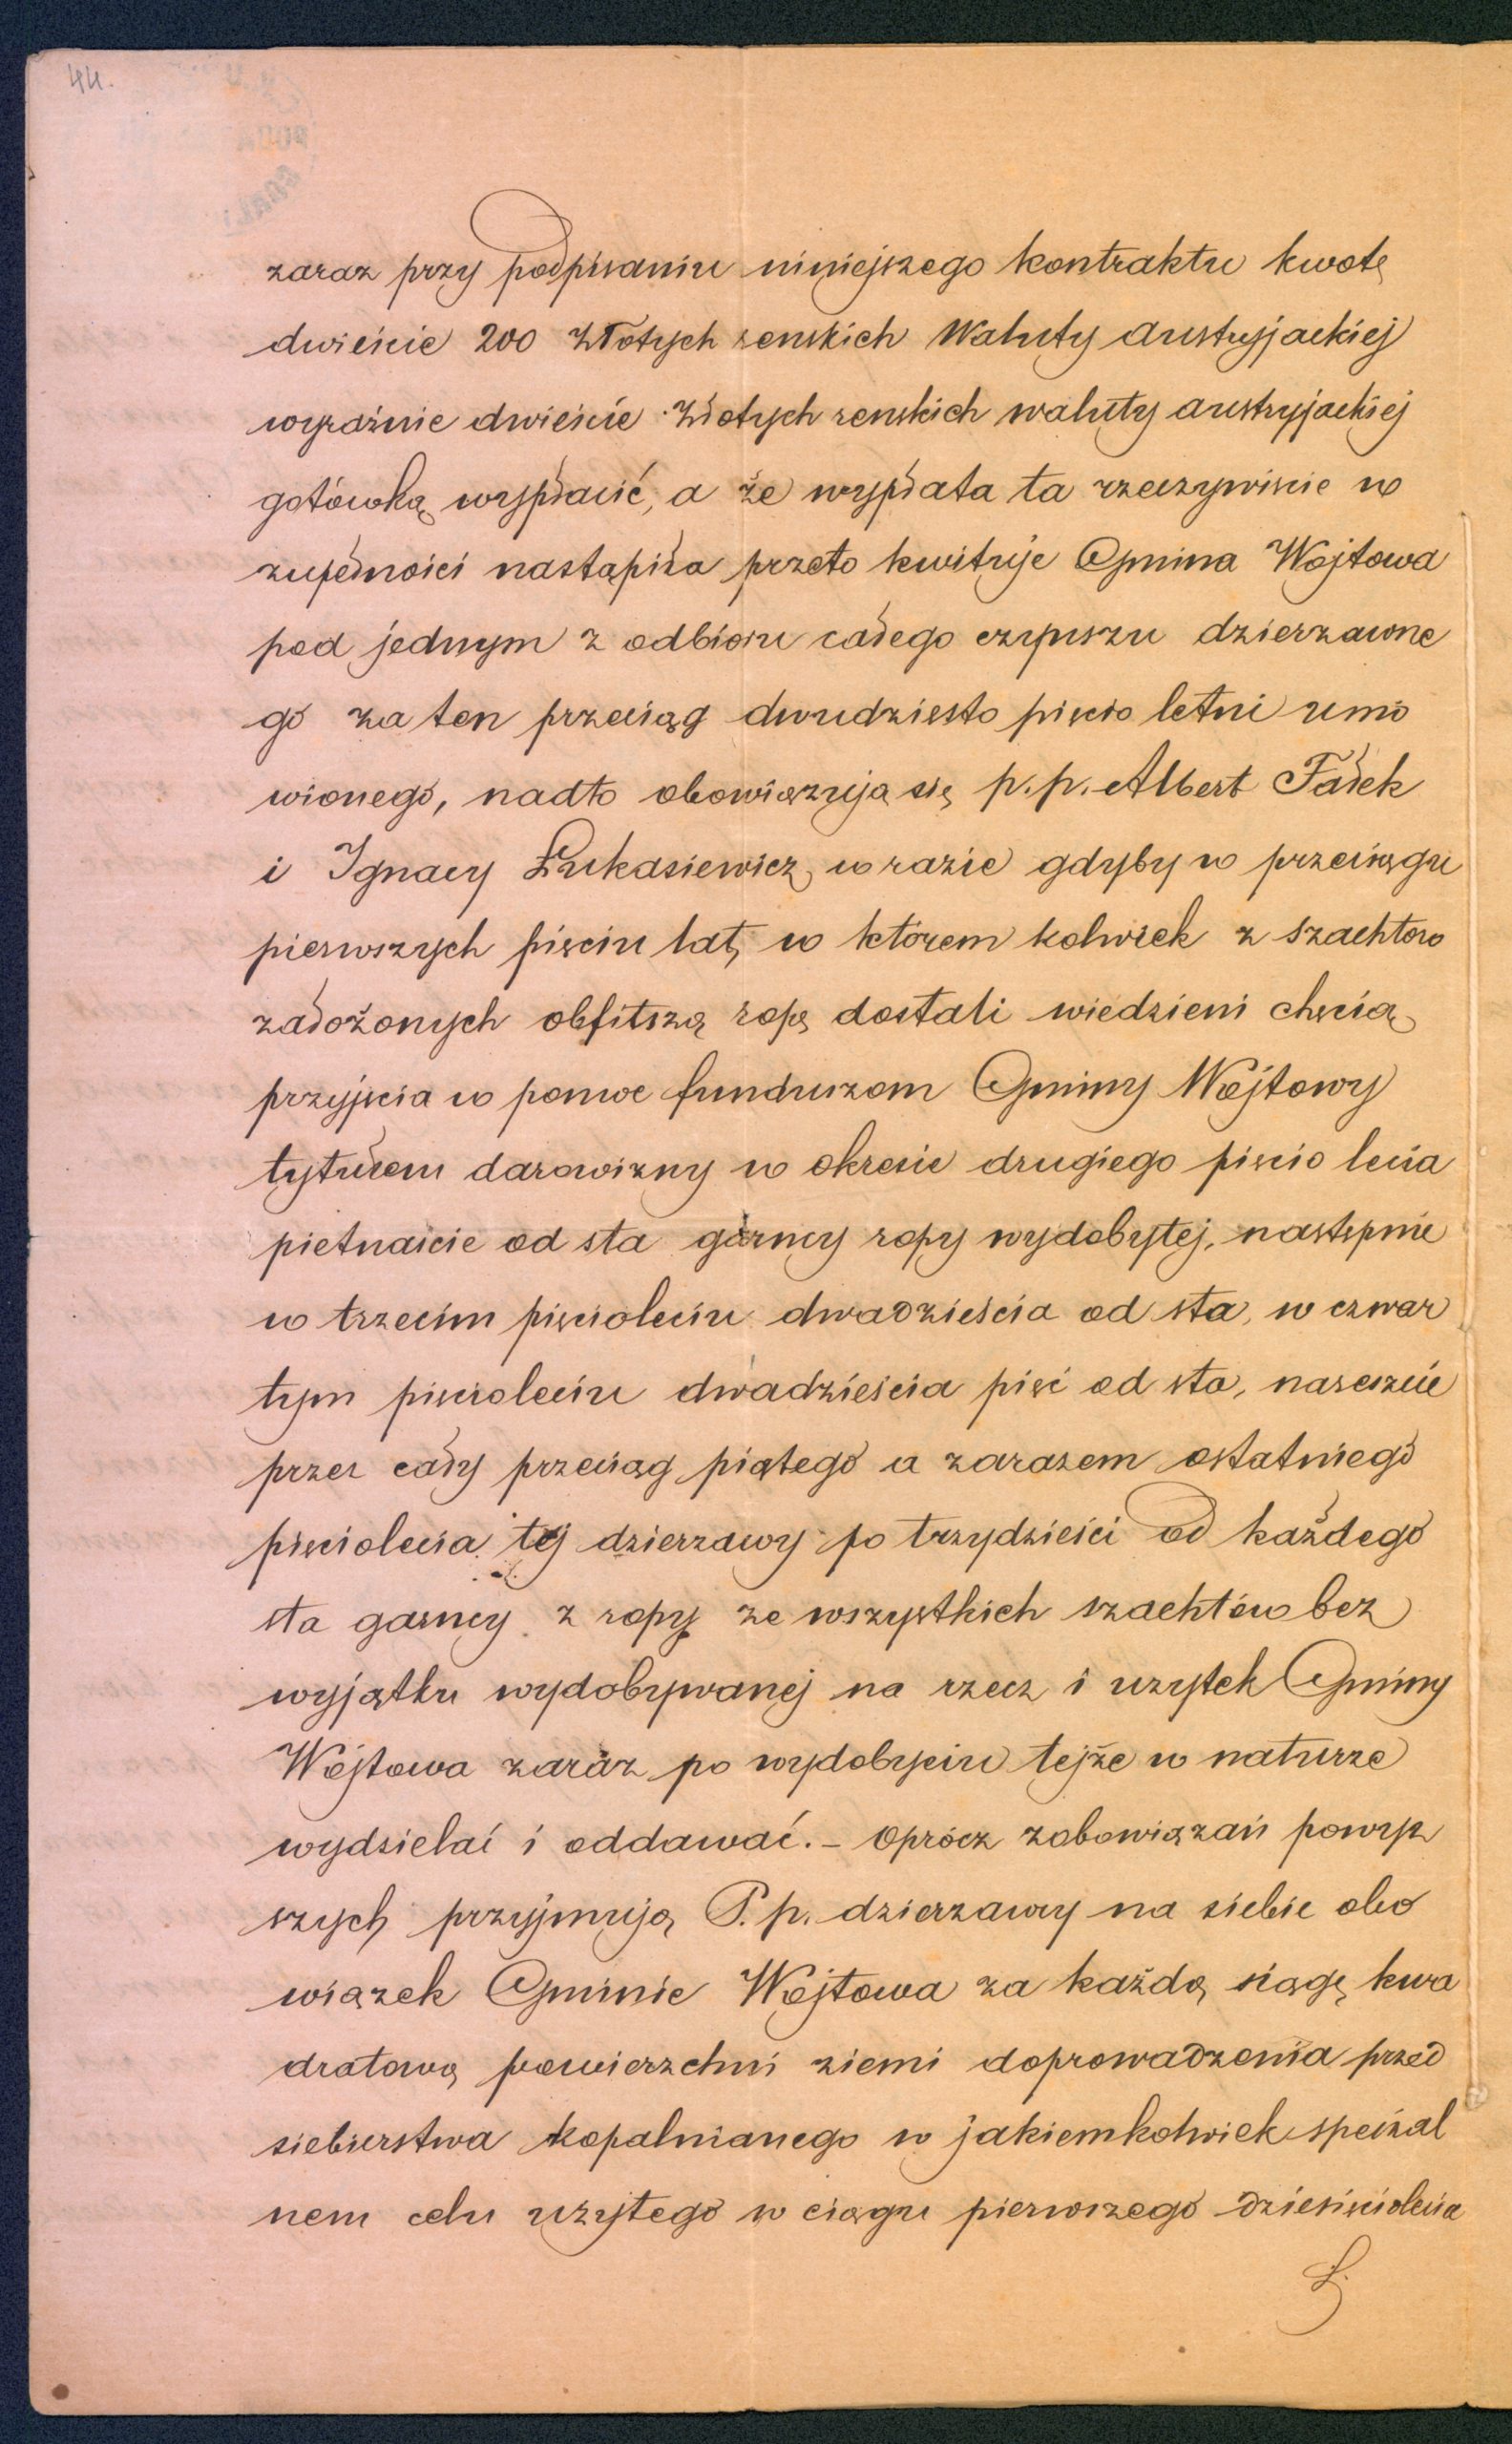 44.
zaraz przy podpisaniu niniejszego kontraktu kwotę
dwieście 200 złotych renskich Waluty austryjackiej
wyraźnie dwieście złotych renskich waluty austryjackiej
gotówką wypłacić, a że wypłata ta rzeczywiscie w
zupełności nastąpiła przeto kwituje Gmina Wójtowa
pod jednym z odbioru całego czynszu dzierzawne
go za ten przeciąg dwudziesto pięcio letni umó
wionego, nadto obowiązują się p.p. Albert Fałek
i Ignacy Łukasiewicz, w razie gdyby w przeciągu
pierwszych pięciu lat, w którem kolwiek z szachtów
założonych obfitszą ropę dostali wiedzieni chęcią
przyjścia w pomoc funduszom Gminy Wójtowy
tytułem darowizny w okresie drugiego pięcio lecia
pietnaście od sta garncy ropy wydobytej, następnie
w trzecim pięcioleciu dwadzieścia od sta, w czwar
tym pięcioleciu dwadzieścia pięć od sta, nareszcie
przez cały przeciąg piątego a zarazem ostatniego
pięciolecia tej dzierzawy po trzydzieści od każdego
sta garncy z ropy ze wszystkich szachtów bez
wyjątku wydobywanej na rzecz i uzytek Gminy
Wójtowa zaraz po wydobyciu tejże w naturze
wydzielać i oddawać. – Oprócz zobowiązań powyz
szych przyjmują P.p. dzierzawcy na siebie obo
wiązek Gminie Wójtowa za każdą siągę kwa
dratową powierzchni ziemi doprowadzenia przed
siebierstwa kopalnianego w jakiemkolwiek special
nem celu użytego w ciągu pierwszego dziesięciolecia